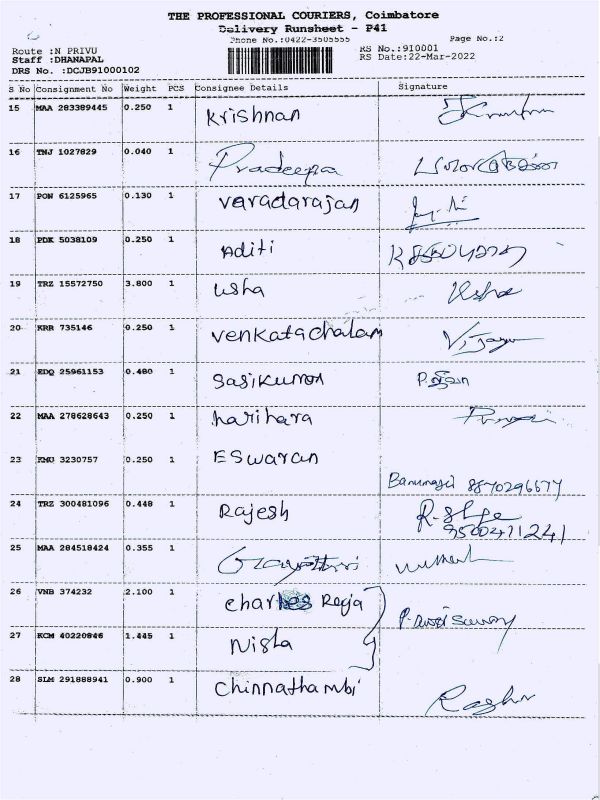 THE PROFESSIONAL COURIERS, Coimbatore
Delivery Runsheet - P41
Phone No.:0422-3505555 Page No.:2
Route :N PRIVU RS No.:910001
Staff :DHANAPAL RS Date:22-Mar-2022
DRS No. :DCJB91000102
S No Consignment No Weight PCS Consignee Details Signature
15 MAA 283389445 0.250 1 Krishnan
16 TNJ 1027829 0.040 1 Pradeepa
17 PON 6125965 0.130 1 Varadarajan
18 PDK 5038109 0.250 1 Aditi
19 TRZ 15572750 3.800 1 Usha Usha
20 KRR 735146 0.250 1 Venkatachalam Vijaya
21 EDQ 25961153 0.480 1 Sasikumar
22 MAA 278628643 0.250 1 harihara
23 KMU 3230757 0.250 1 ESwaran Banumagi 8870296677
24 TRZ 300481096 0.448 1 Rajesh
9500471241
25 MAA 284518424 0.355 1 Gayathri
26 VNB 374232 2.100 1 Charles Raja
27 KCM 40220846 1.445 1 Nisha
28 SLM 291888941 0.900 1 Chinnathambi Raghu